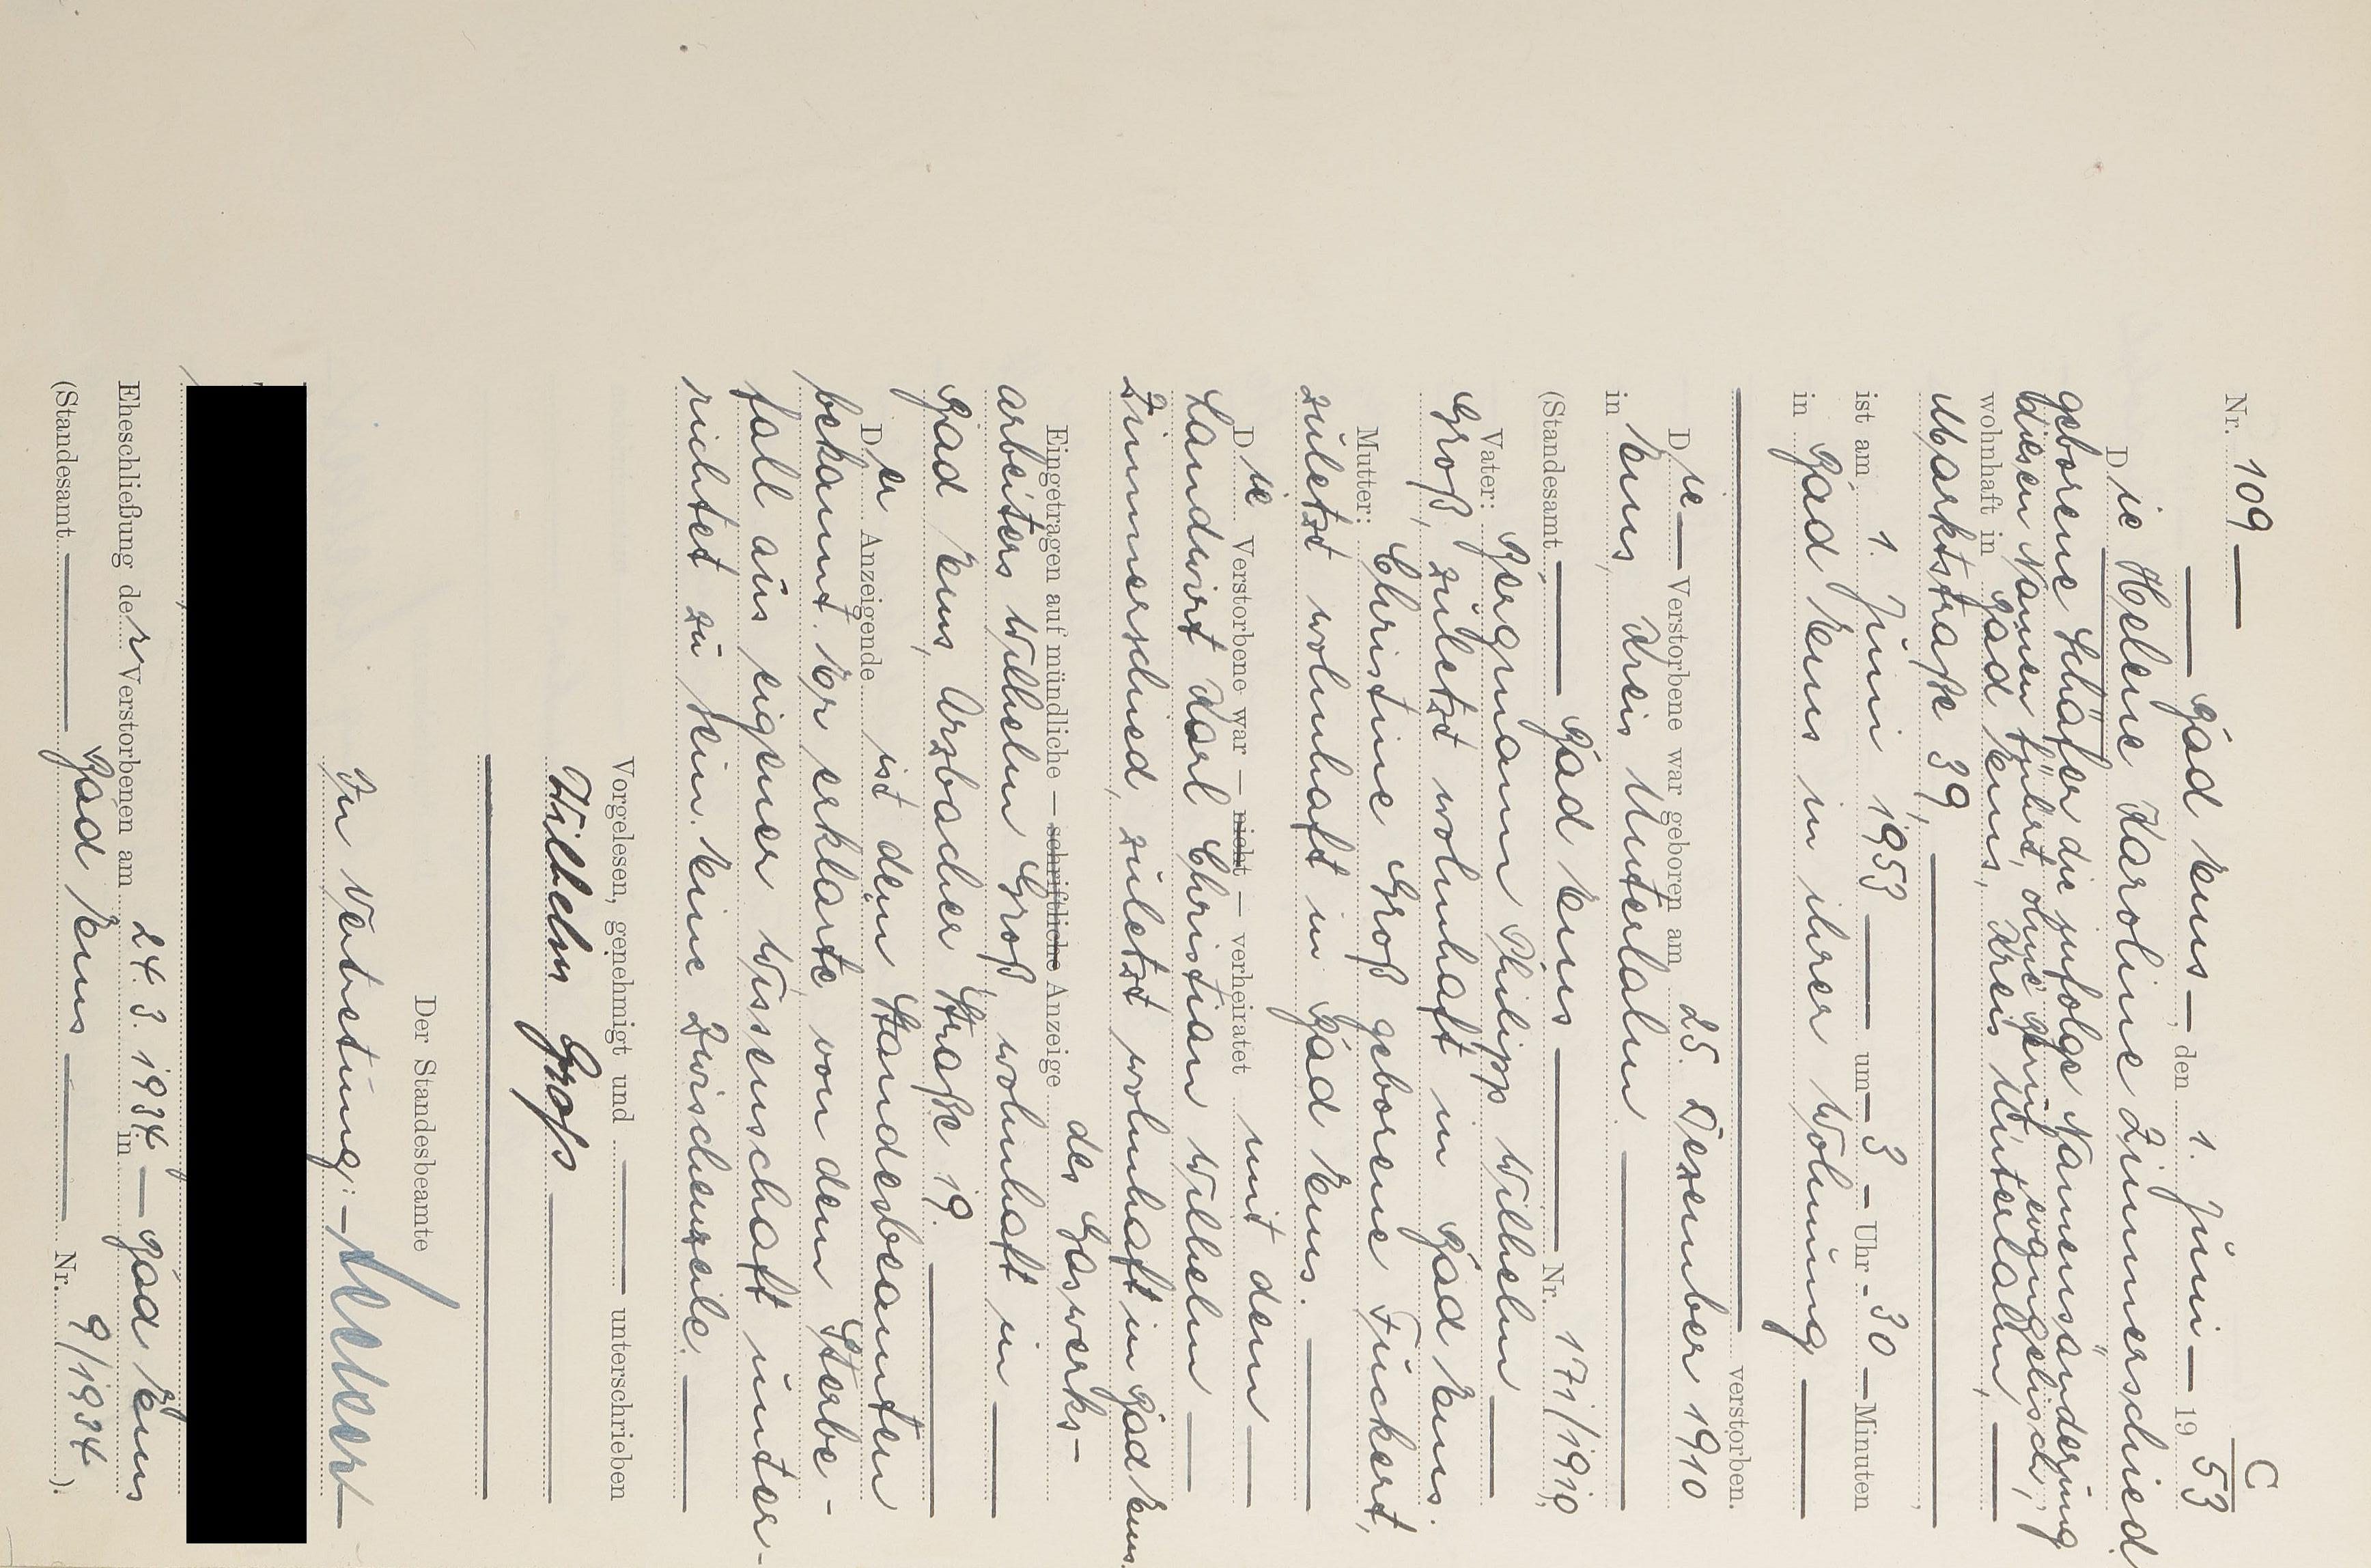 C
Nr. 109
Bad Ems, den 1. Juni 1953
Die Helene Karoline Zimmerschied
geborene Schäfer die infolge Namensänderung
diesen Namen führt, ohne Beruf, evangelisch,
wohnhaft in Bad Ems, Kreis Unterlahn,
Marktstraße 39,
ist am 1. Juni 1953 um 3 Uhr 30 Minuten
in Bad Ems in ihrer Wohnung
verstorben.
Die Verstorbene war geboren am 25. Dezember 1910
in Ems, Kreis Unterlahn.
(Standesamt Bad Ems Nr. 171/1910)
Vater: Bergmann Philipp Wilhelm
Groß, zuletzt wohnhaft in Bad Ems.
Mutter: Christine Groß geborene Fuckert,
zuletzt wohnhaft in Bad Ems.
Die Verstorbene war — nicht — verheiratet mit dem
Landwirt Karl Christian Wilhelm
Zimmerschied, zuletzt wohnhaft in Bad Ems.
Eingetragen auf mündliche — schriftliche Anzeige des Gaswerks-
arbeiters Wilhelm Groß, wohnhaft in
Bad Ems, Arzbacher Straße 19.
Der Anzeigende ist dem Standesbeamten
bekannt. Er erklärte von dem Sterbe-
fall aus eigener Wissenschaft unter-
richtet zu sein. Eine Zwischenzeile.
Vorgelesen, genehmigt und unterschrieben
Wilhelm Groß
Der Standesbeamte
In Vertretung:
Eheschließung der Verstorbenen am 24. 3. 1934 in Bad Ems
(Standesamt Bad Ems Nr. 9/1934).